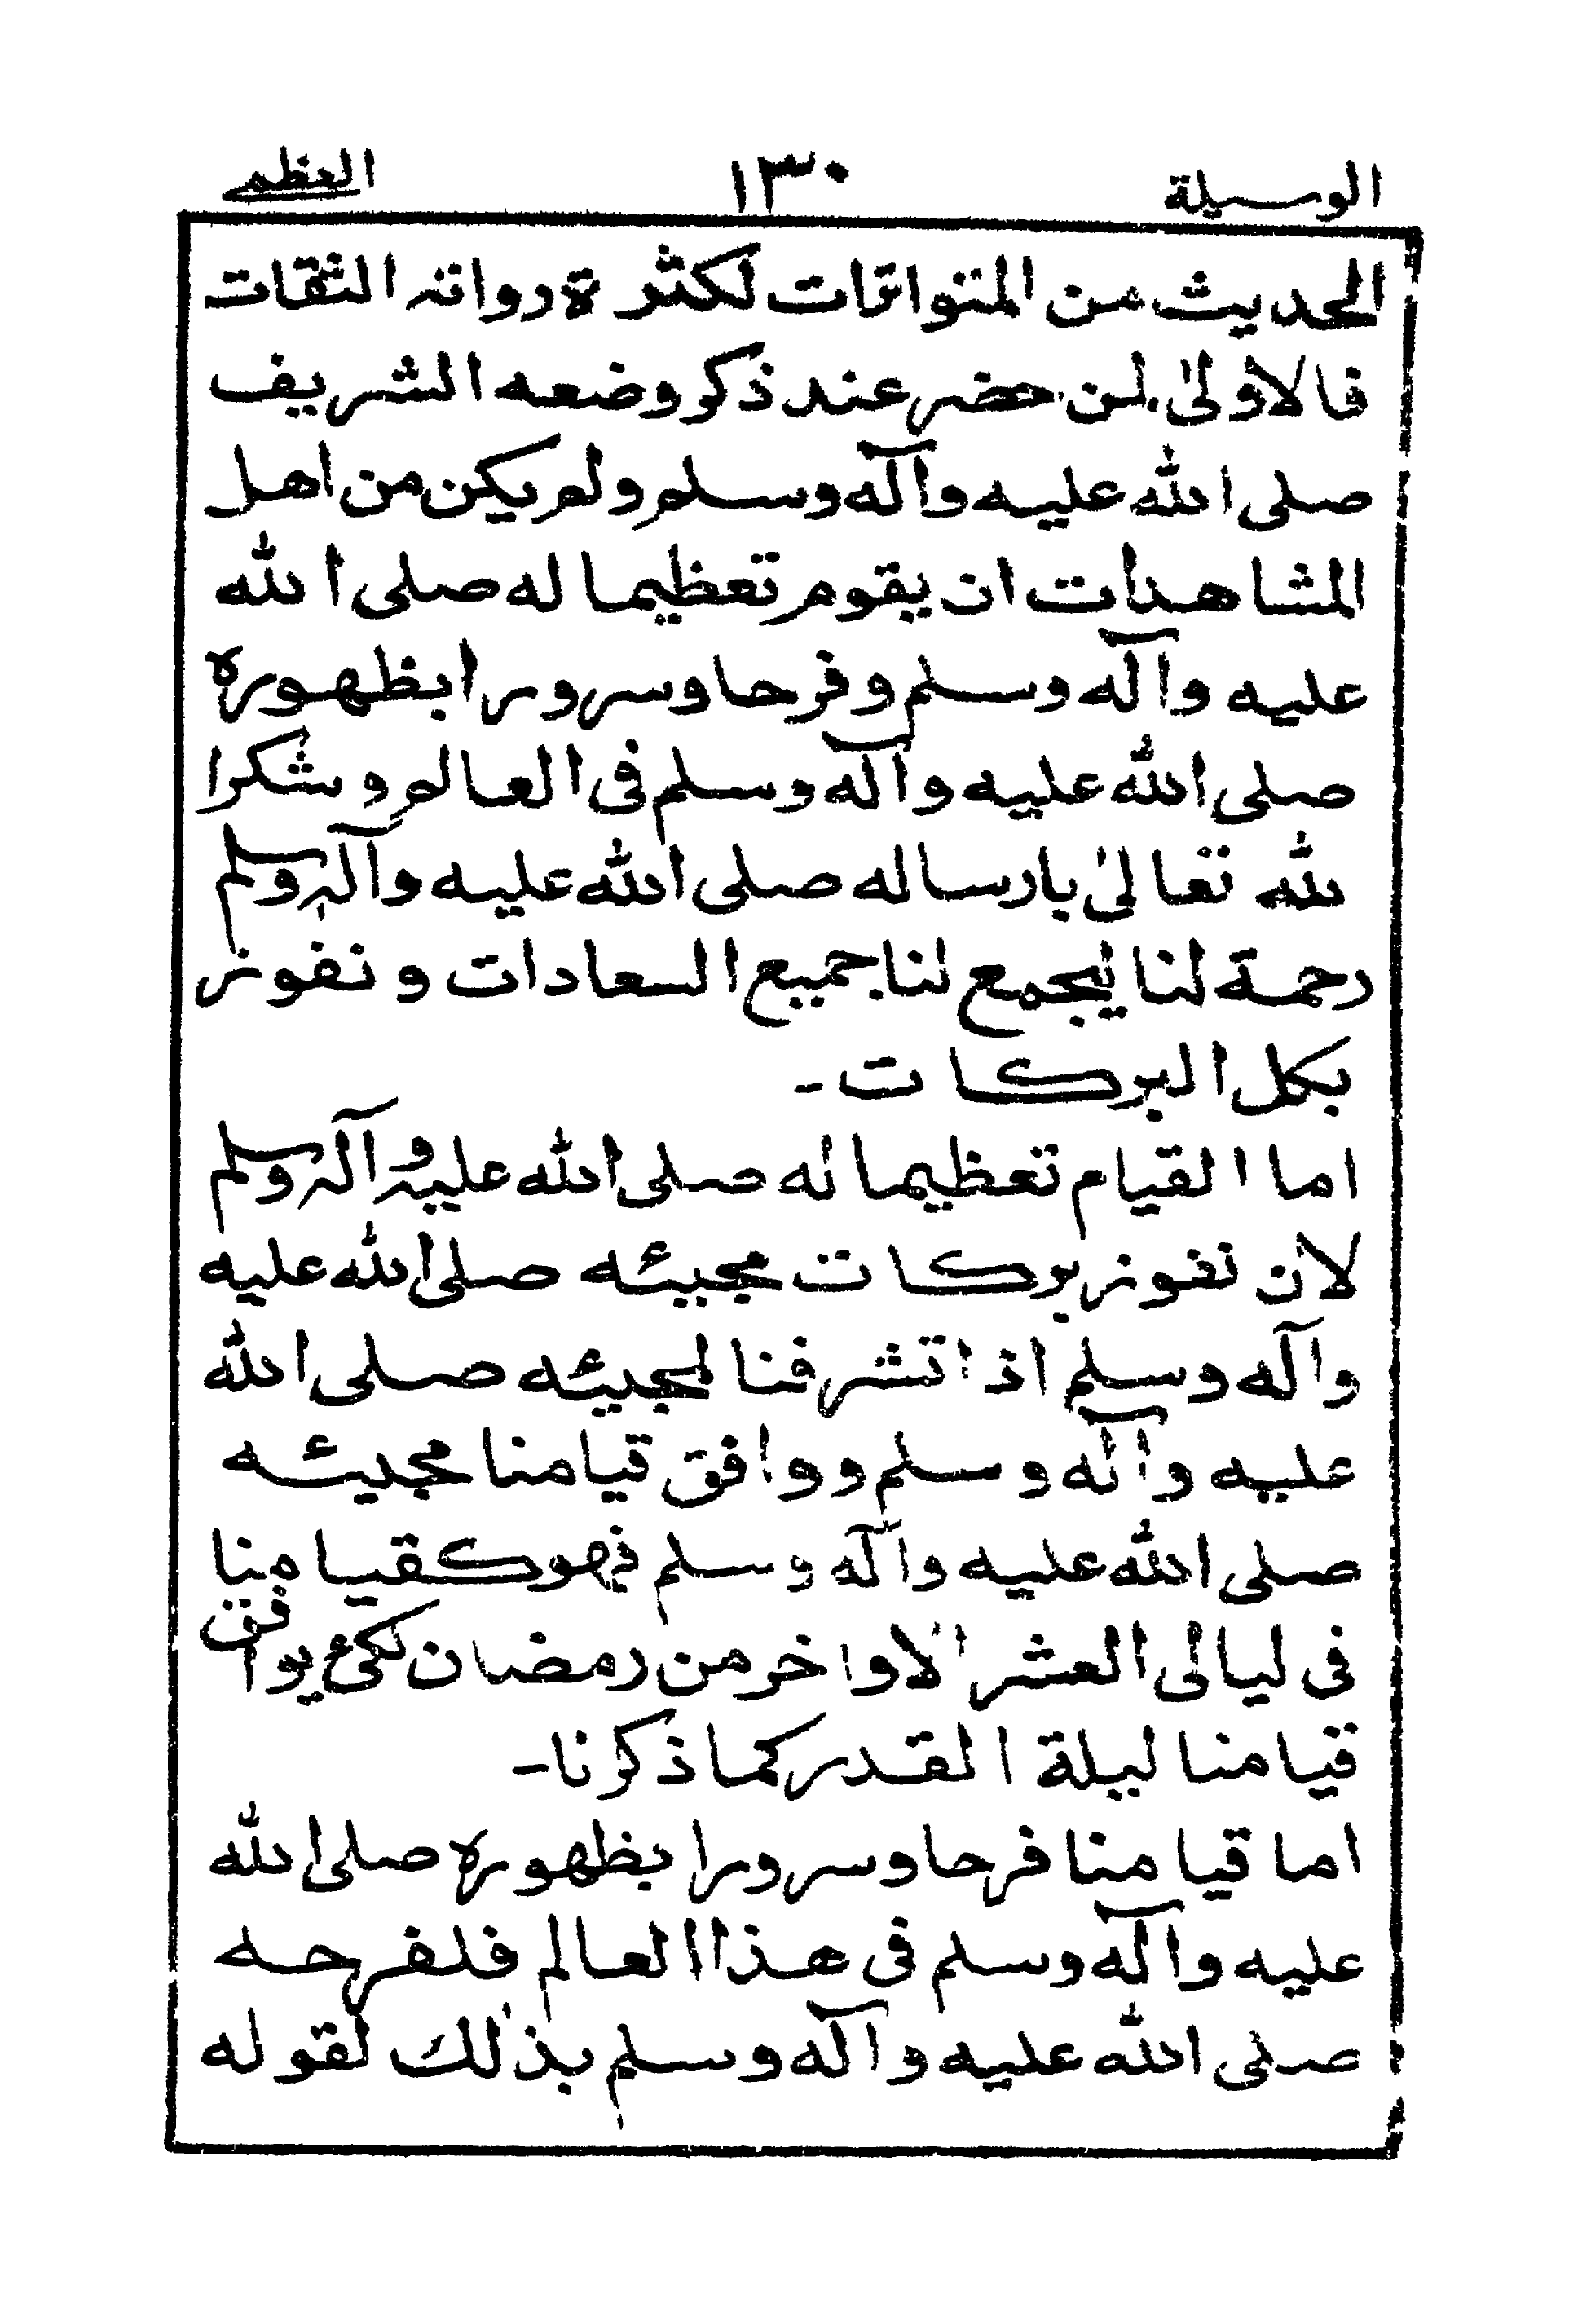 الوسيلة ١٣٠ العظمى
الحديث من المتواترات لكثرة رواته الثقات
فالاولىٰ لمن حضر عند ذكر وضعه الشريف
صلى الله عليه وآله وسلم ولم يكن من اهل
المشاهدات ان يقوم تعظيما له صلى الله
عليه وآله وسلم وفرحا وسرورا بظهوره
صلى الله عليه وآله وسلم فى العالم وشكرا
لله تعالىٰ بارساله صلى الله عليه وآله وسلم
رحمة لنا ليجمع لنا جميع السعادات و نفوز
بكل البركات -
اما القيام تعظيما له صلى الله عليه وآله وسلم
لان نفوز بركات مجيئه صلى الله عليه
وآله وسلم اذا تشرفنا لمجيئه صلى الله
عليه وآله وسلم ووافق قيامنا مجيئه
صلى الله عليه وآله وسلم فهو كقيامنا
فى ليالى العشر الاواخر من رمضان لكى يوافق
قيامنا ليلة القدر كما ذكرنا -
اما قيامنا فرحا وسرورا بظهوره صلى الله
عليه وآله وسلم فى هذا العالم فلفرحه
صلى الله عليه وآله وسلم بذلك لقوله